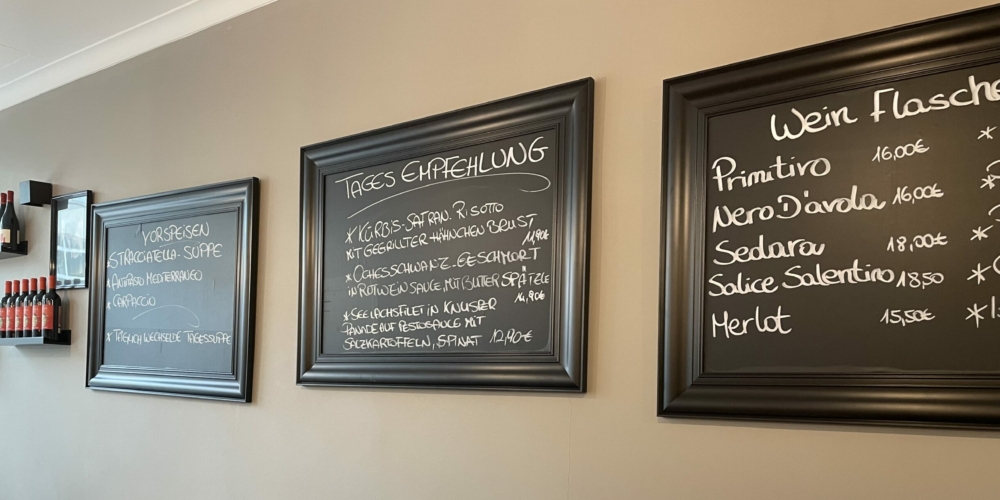 VORSPEISEN
*STRACCIATELLA-SUPPE
*ANTIPASTO MEDITERRANEO
*CARPACCIO
*TÄGLICH WECHSELDE TAGESSUPPE
TAGES EMPFEHLUNG
*KÜRBIS-SAFRAN. RISOTTO
MIT GEGRILLTER HÄHNCHEN BRUST
11,90€
*OCHESSCHWANZ-GESCHMORT
IN ROTWEIN SAUCE, MIT BUTTER SPÄTZLE
14,90€
*SEELACHSFILET IN KNUSPER
PANADE AUF PESTOSAUCE MIT
SALZKARTOFFELN, SPINAT 12,90€
Wein Flasche
Primitivo 16,00€
Nero D'avola 16,00€
Sedara 18,00€
Salice Salentino 18,50
Merlot 15,50€